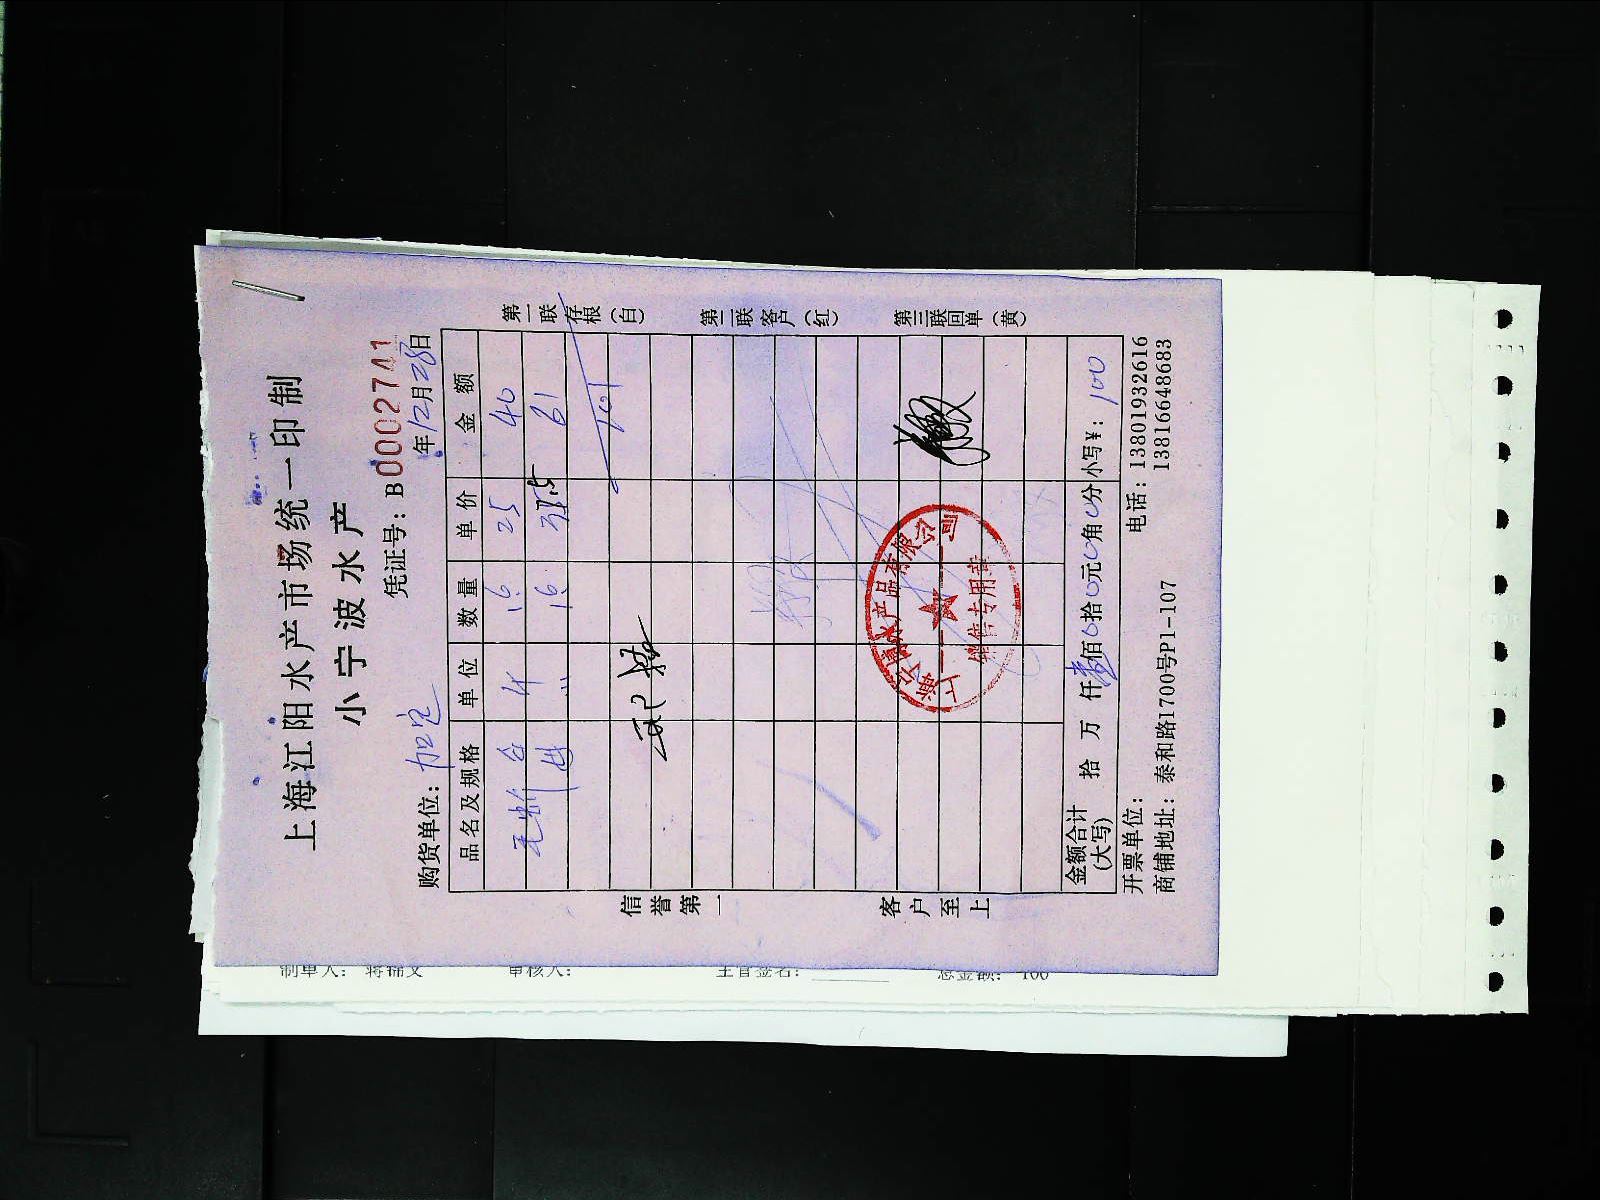 上海江阳水产市场统一印制
小宁波水产
凭证号：B0002741
购货单位：加定 年12月28日
品名及规格 单位 数量 单价 金额
毛蚶 斤 1.6 25 40
1.6 61
101
第一联存根（白）
第二联客户（红）
第三联回单（黄）
信誉第一
客户至上
水产品有限公司
销售专用章
金额合计（大写） 拾 万 仟壹佰0拾0元0角0分 小写¥：100
开票单位： 电话：13801932616
商铺地址：泰和路1700号P1-107 13816648683
制单人： 审核人： 主管签名： 总金额：100